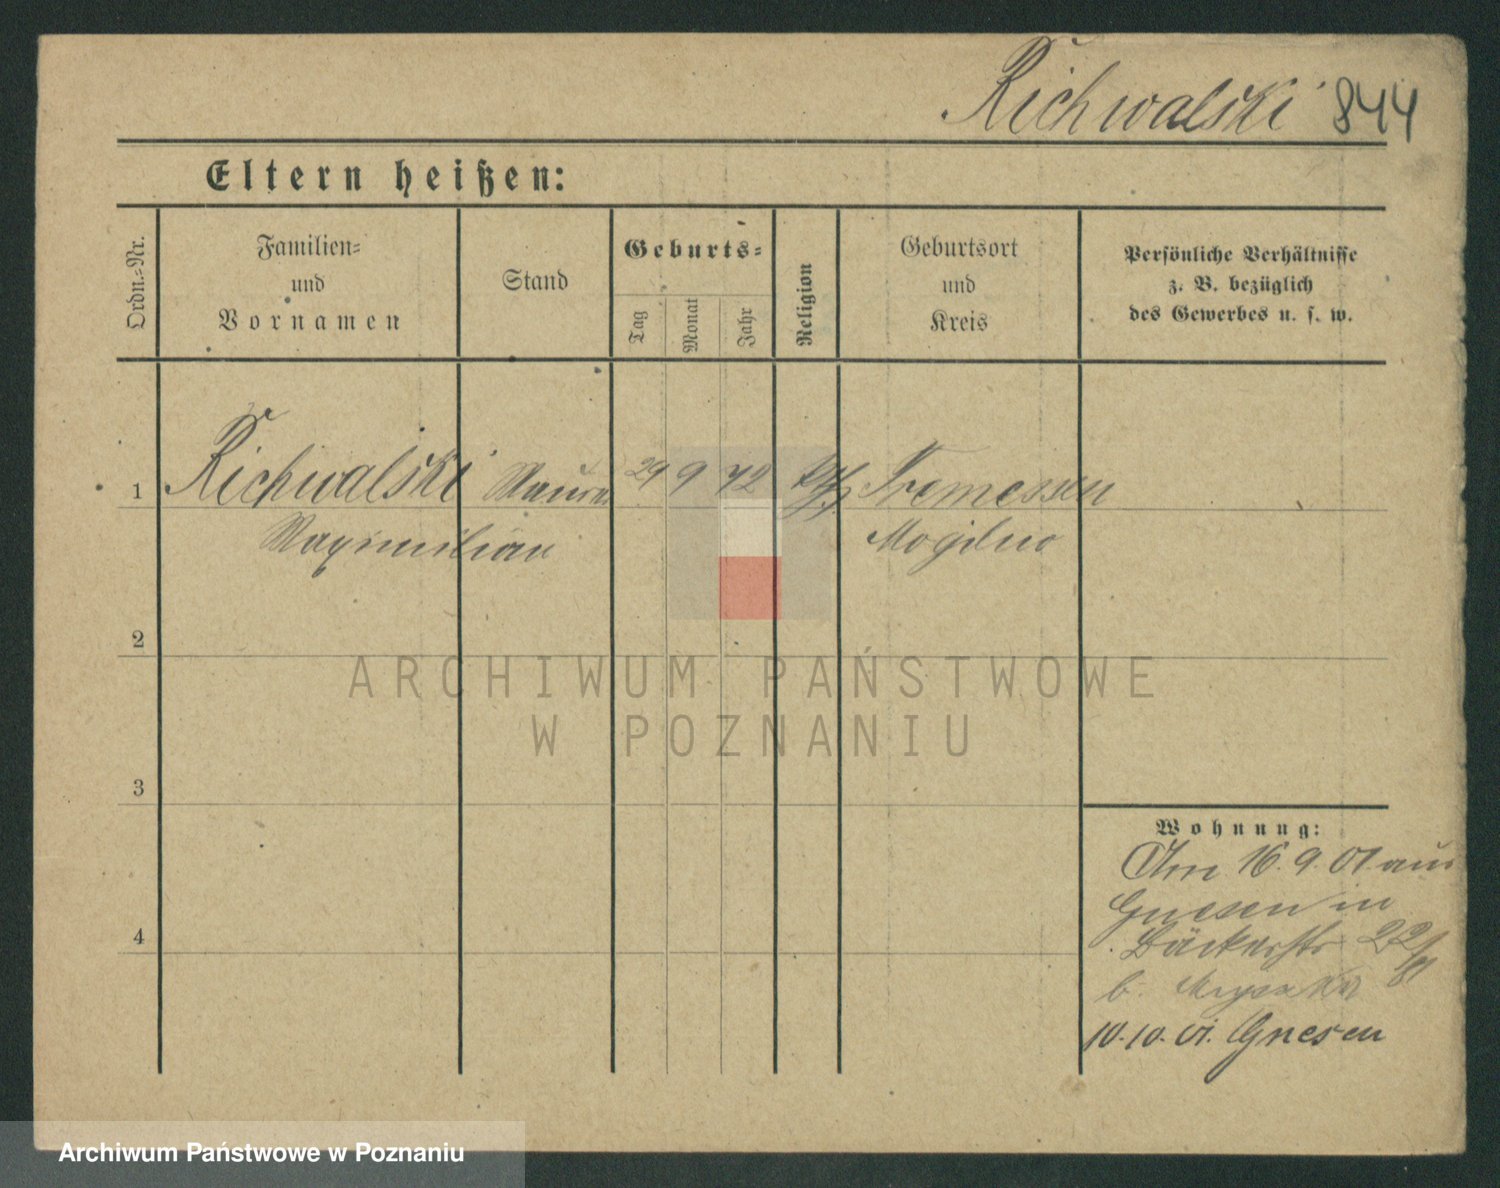 Richwalski 844
Eltern heißen:
Ordn.-Nr.
Familien-
und
Vornamen
Stand
Geburts-
Tag
Monat
Jahr
Religion
Geburtsort
und
Kreis
Persönliche Verhältnisse
z. B. bezüglich
des Gewerbes u. s. w.
1 Richwalski Maurer 29 9 72 Tremessen
Maximilian Mogilno
2
3
4
Wohnung:
Am 16.9.01 aus
Gnesen in
Bäckerstr 22
b.
10.10.01. Gnesen
ARCHIWUM PAŃSTWOWE
W POZNANIU
Archiwum Państwowe w Poznaniu